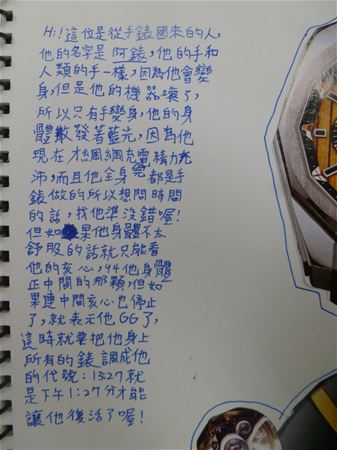 Hi!這位是從手錶國來的人,
他的名字是阿錶,他的手和
人類的手一樣,因為他會變
身,但是他的機器壞了,
所以只有手變身,他的身
體散發著藍光,因為他
現在才剛剛充完電精力充
沛,而且他全身都是手
錶做的所以想問時間
的話,找他準沒錯喔!
但如果他身體不太
舒服的話就只能看
他的亥心,94他身體
正中間的那顆,但如
果連中間亥心也停止
了,就表示他GG了,
這時就要把他身上
所有的錶調成他
的代號:1327就
是下午1:27分才能
讓他復活了喔!